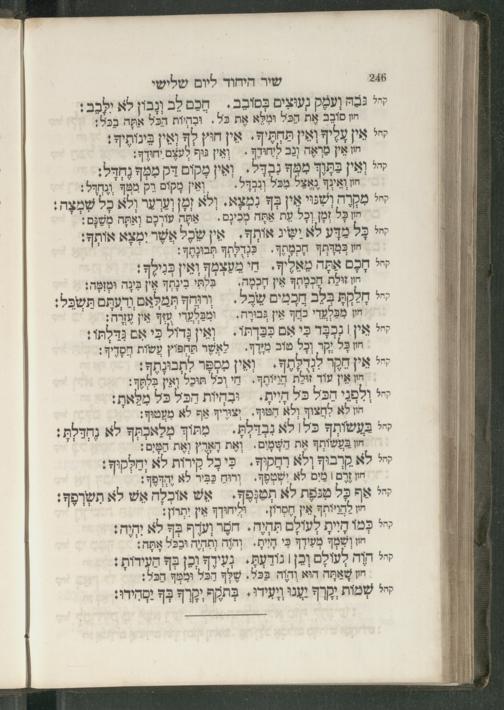 246
שיר היחוד ליום שלישי
קהל גֹּבַהּ וְעֹמֶק נְעוּצִים כְּסוֹבֵב. חֲכַם לֵב וְנָבוֹן לֹא יִלָּבֵב:
חזן סוֹבֵב אֶת הַכֹּל וּמָלֵא אֶת כֹּל. וּבִהְיוֹת הַכֹּל אַתָּה בַכֹּל:
קהל אֵין עָלֶיךָ וְאֵין תַּחְתֶּיךָ. אֵין חוּץ לְךָ וְאֵין בֵּינוֹתֶיךָ:
חזן אֵין מַרְאֶה וְגַב לְיִחוּדֶךָ. וְאֵין גּוּף לְעֹצֶם יִחוּדֶךָ:
קהל וְאֵין בַּתָּוֶךְ מִמְּךָ נִבְדָּל. וְאֵין מָקוֹם דַּק מִמְּךָ נֶחְדָּל:
חזן וְאֵינְךָ נֶאֱצָל מִכֹּל וְנִבְדָּל. וְאֵין מָקוֹם רֵק מִמְּךָ וְנֶחְדָּל:
קהל מִקְרֶה וְשִׁנּוּי אֵין בְּךָ נִמְצָא. וְלֹא זְמָן וְעַרְעַר וְלֹא כָל שִׁמְצָה:
חזן כָּל זְמָן וְכָל עֵת אַתָּה מְכִינָם. אַתָּה עוֹרְכָם וְאַתָּה מְשַׁנָּם:
קהל כָּל מַדָּע לֹא יַשִּׂיג אוֹתָךְ. אֵין שֵׂכֶל אֲשֶׁר יִמְצָא אוֹתָךְ:
חזן כְּמִדָּתְךָ חָכְמָתֶךָ. כִּגְדֻלָּתְךָ תְּבוּנָתֶךָ:
קהל חָכָם אַתָּה מֵאֵלֶיךָ. חַי מֵעַצְמְךָ וְאֵין כְּגִילֶךָ:
חזן זוּלַת חָכְמָתְךָ אֵין חָכְמָה. בִּלְתִּי בִינָתְךָ אֵין בִּינָה וּמְזִמָּה:
קהל חָלַקְתָּ בְּלֵב חֲכָמִים שֵׂכֶל. וְרוּחֲךָ תְּמַלְּאֵם וְדֵעְתָּם תַּשְׂכֵּל:
חזן מִבַּלְעֲדֵי כֹחֲךָ אֵין גְּבוּרָה. וּמִבַּלְעֲדֵי עֻזְּךָ אֵין עֶזְרָה:
קהל אֵין ׀ נִכְבָּד כִּי אִם כִּבַּדְתּוֹ. וְאֵין גָּדוֹל כִּי אִם גִּדַּלְתּוֹ:
חזן כָּל יְקָר וְכָל טוּב מִיָּדֶךָ. לַאֲשֶׁר תַּחְפּוֹץ עֲשׂוֹת חֲסָדֶיךָ:
קהל אֵין חֵקֶר לִגְדֻלָּתֶךָ. וְאֵין מִסְפָּר לִתְבוּנָתֶךָ:
חזן אֵין עוֹד זוּלַת הֲוָיָתֶךָ. חַי וְכֹל תּוּכָל וְאֵין בִּלְתֶּךָ:
קהל וְלִפְנֵי הַכֹּל כֹּל הָיִיתָ. וּבִהְיוֹת הַכֹּל כֹּל מִלֵּאתָ:
חזן לֹא לְחָצוּךָ וְלֹא הִטּוּךָ. יְצוּרֶיךָ אַף לֹא מְעָטוּךָ:
קהל בַּעֲשׂוֹתְךָ כֹּל ׀ לֹא נִבְדַּלְתָּ. מִתּוֹךְ מְלַאכְתְּךָ לֹא נֶחְדַּלְתָּ:
חזן בַּעֲשׂוֹתְךָ אֶת הַשָּׁמַיִם. וְאֶת הָאָרֶץ וְאֶת הַמַּיִם:
קהל לֹא קֵרְבוּךָ וְלֹא רִחֲקוּךָ. כִּי כָל קִירוֹת לֹא יְחַלְּקוּךָ:
חזן זֶרֶם ׀ מַיִם לֹא יִשְׁטְפֶךָ. וְרוּחַ כַּבִּיר לֹא יֶהְדְּפֶךָ:
קהל אַף כָּל טִנּוֹפֶת לֹא תְטַנְּפֶךָ. אֵשׁ אוֹכְלָה אֵשׁ לֹא תִשְׂרְפֶךָ:
חזן לַהֲוָיוֹתֶיךָ אֵין חֶסְרוֹן. וּלְיִחוּדְךָ אֵין יִתְרוֹן:
קהל כְּמוֹ הָיִיתָ לְעוֹלָם תִּהְיֶה. חֹסֶר וְעֹדֶף בְּךָ לֹא יִהְיֶה:
חזן וְשִׁמְךָ מְעִידְךָ כִּי הָיִיתָ. וְהֹוֶה וְתִהְיֶה וּבַכֹּל אָתָּה:
קהל הֹוֶה לְעוֹלָם וְכֵן ׀ נוֹדַעְתָּ. נְעִידְךָ וְכֵן בְּךָ הַעִידוֹתָ:
חזן שֶׁאַתָּה הוּא וְהֹוֶה בַּכֹּל. שֶׁלְּךָ הַכֹּל וּמִמְּךָ הַכֹּל:
קהל שְׁמוֹת יְקָרְךָ יַעֲנוּ וְיָעִידוּ. בְּתֹקֶף יְקָרְךָ בְּךָ יַסְהִידוּ: